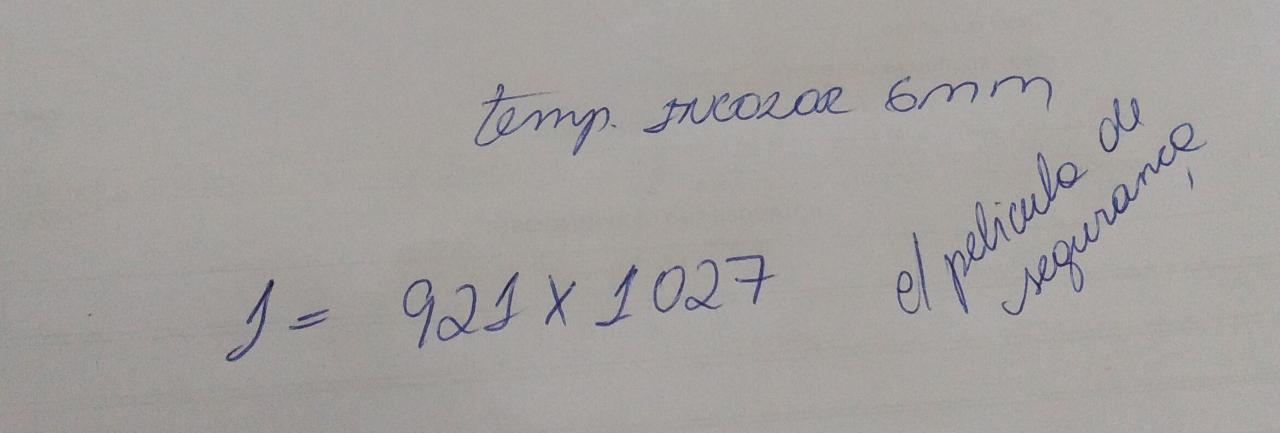 temp. incolor 6mm
1 = 921 x 1027
c/ película de
segurança